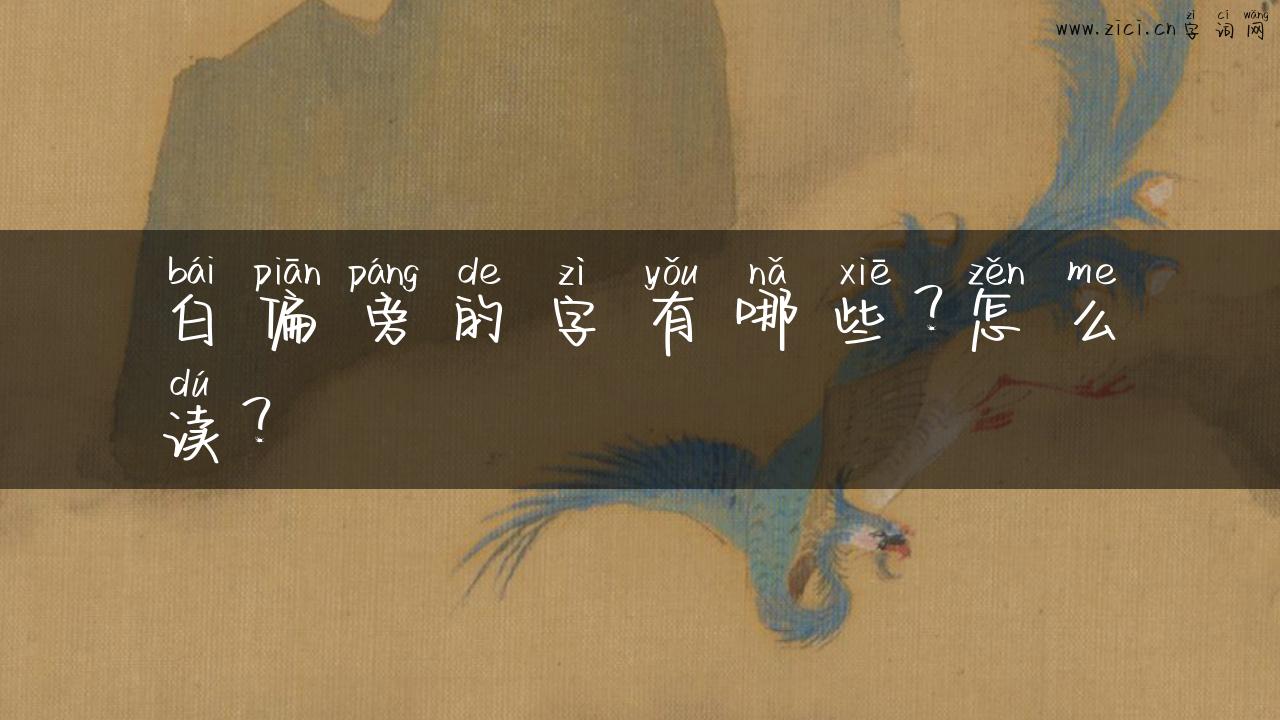 www.zici.cn
zì cí wǎng
字词网
bái piān páng de zì yǒu nǎ xiē zěn me
白偏旁的字有哪些?怎么
dú
读?